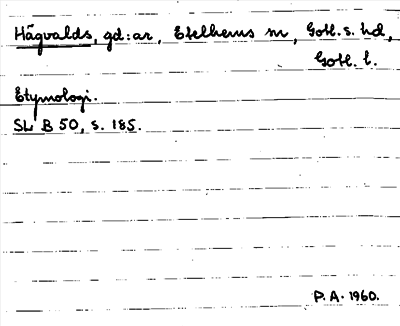 Hägvalds, gd:ar, Etelhems sn, Gotl. s. hd,
Gotl. l.
Etymologi.
SL B 50, s. 185.
P.A. 1960.